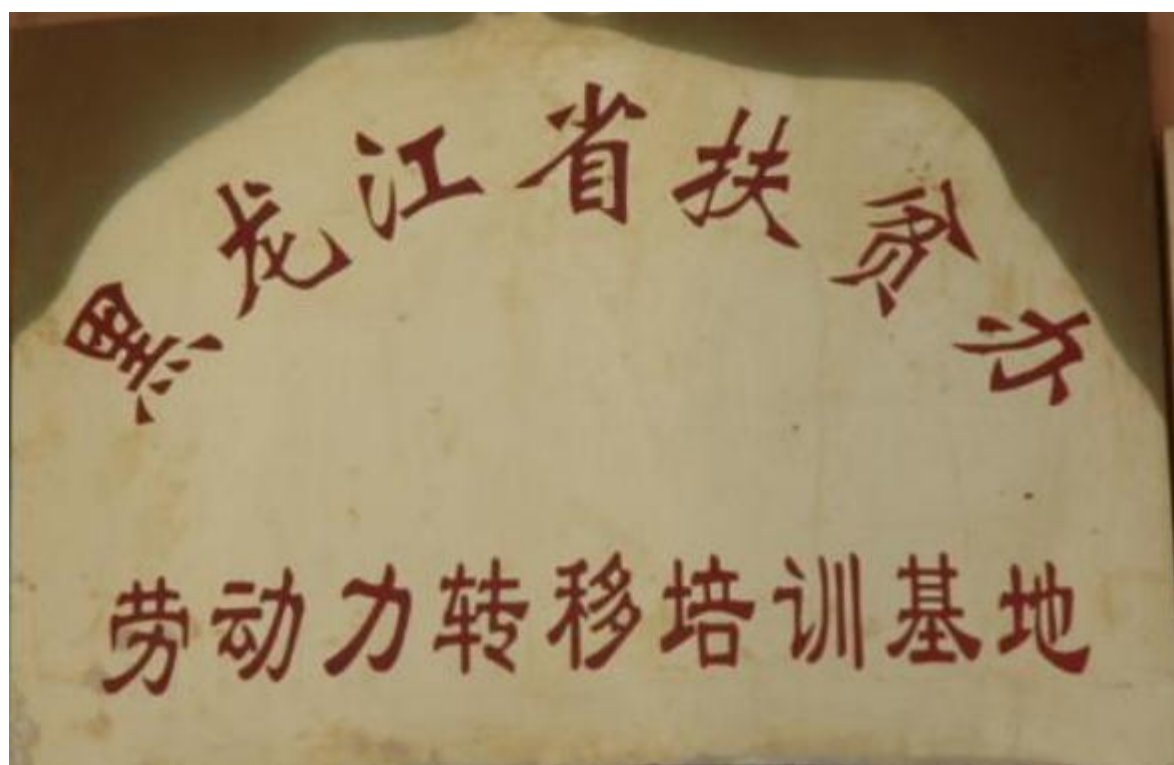 黑龙江省扶贫办
劳动力转移培训基地